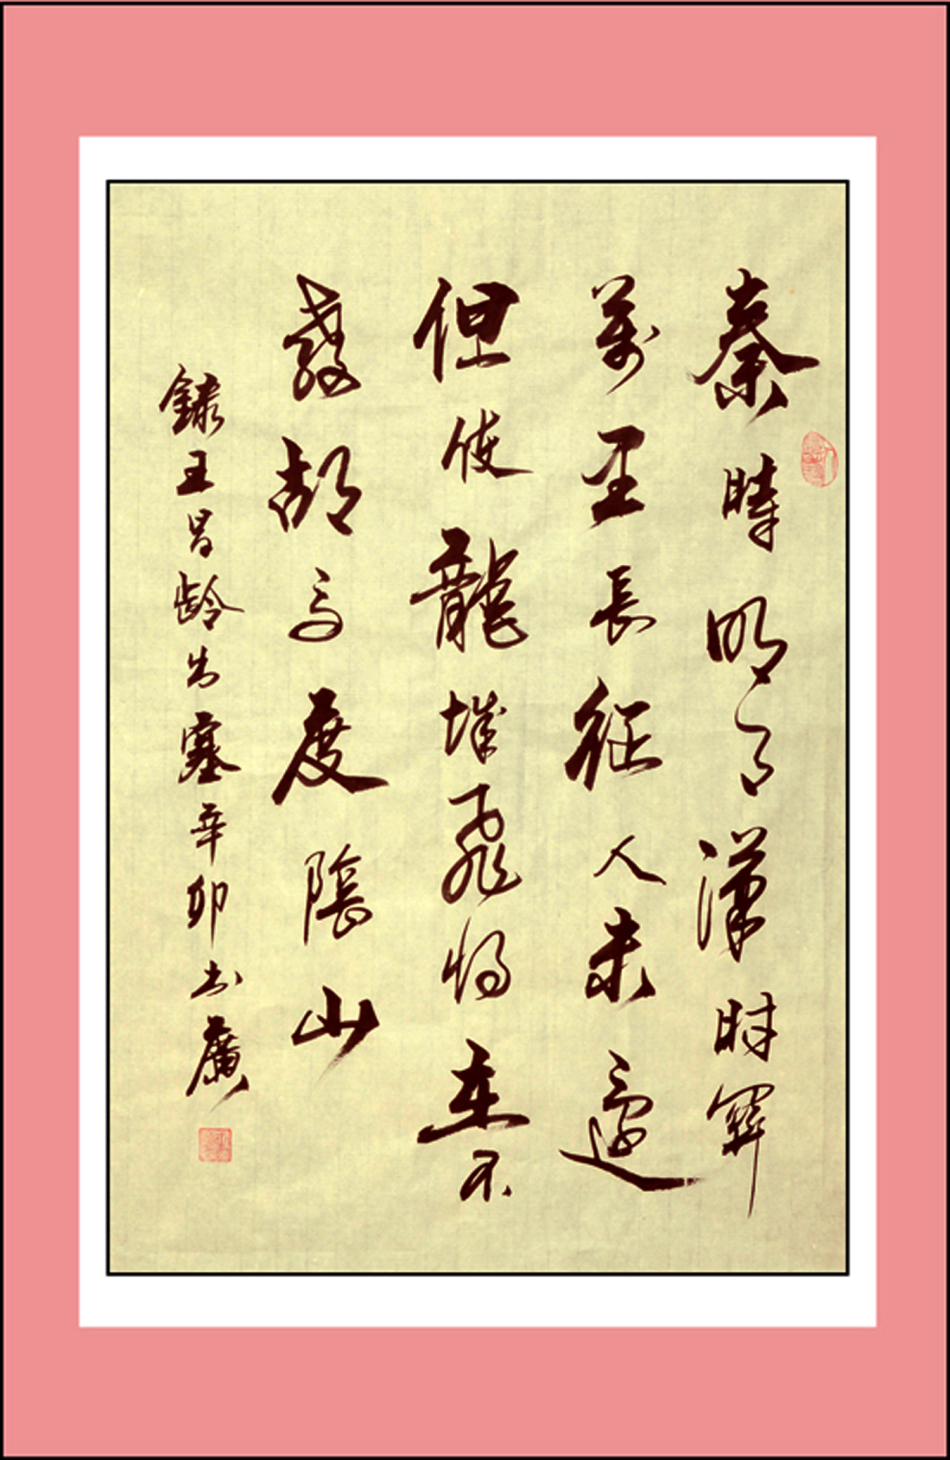 秦時明月漢时關
萬里長征人未還
但使龍城飛將在不
教胡馬度陰山
錄王昌龄出塞辛卯书廣